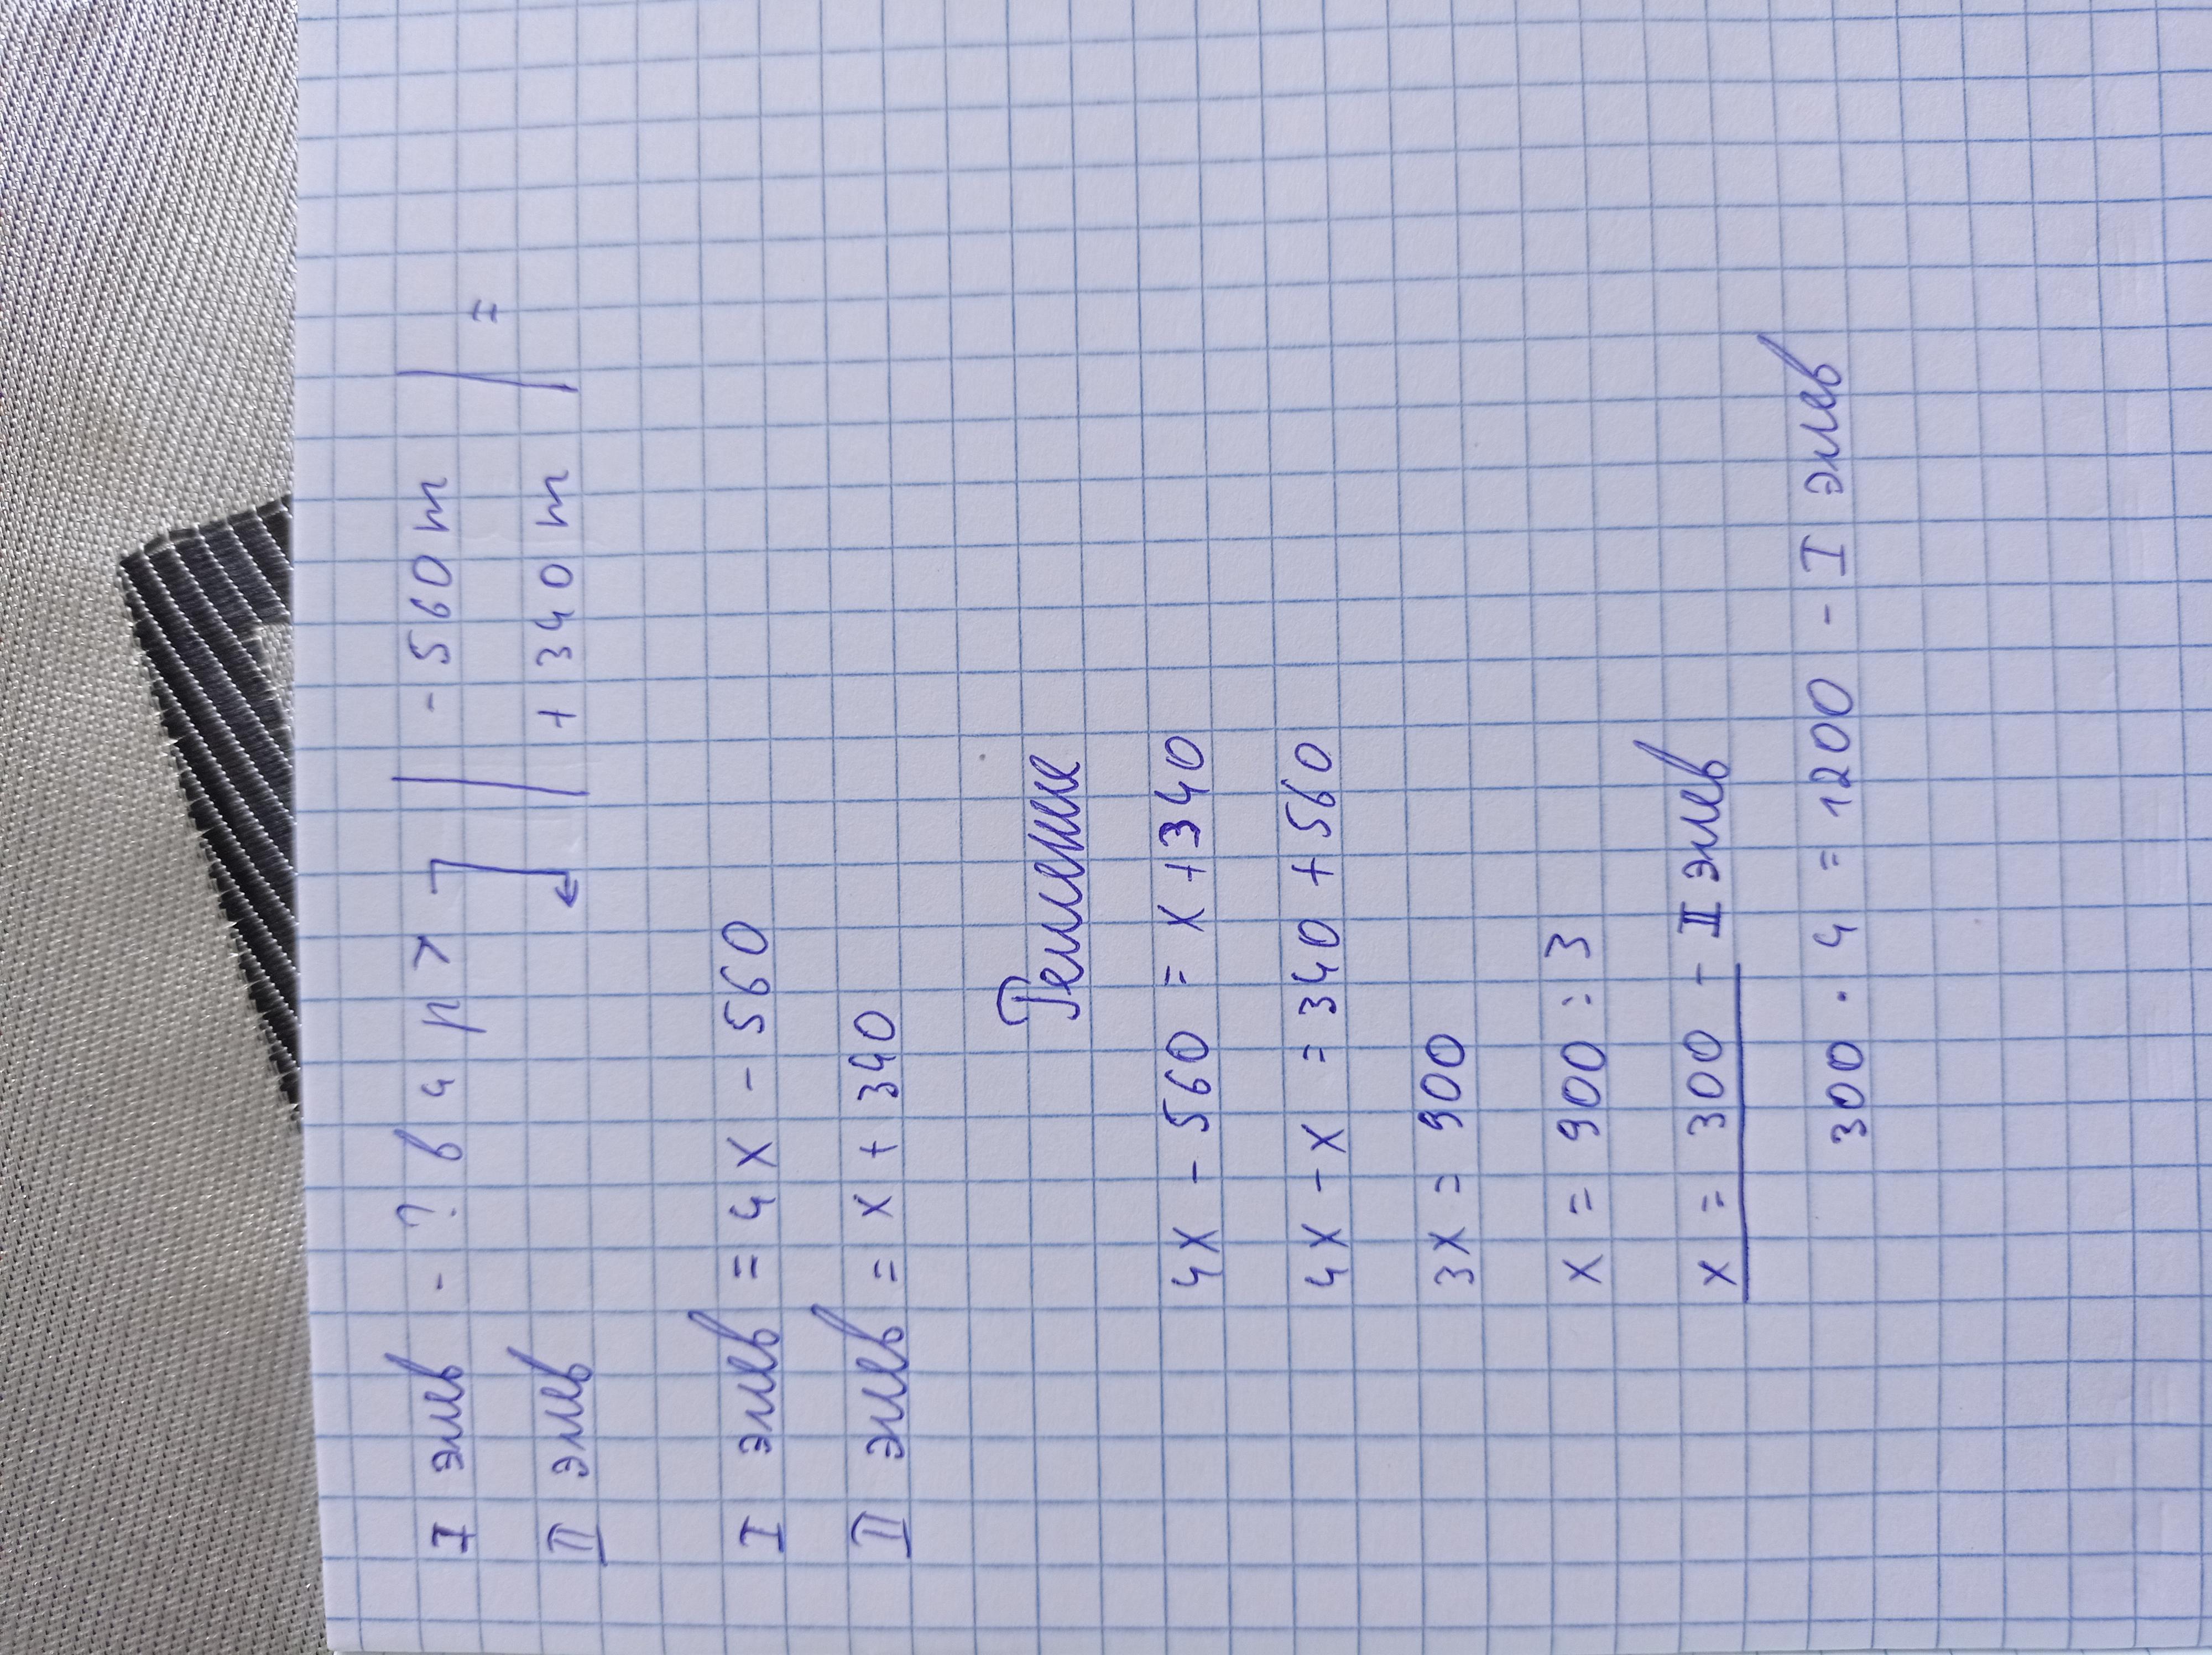 I элев - ? в 4 р > | - 560 т | =
II элев ← | + 340 т |
I элев = 4x - 560
II элев = x + 340
Решение
4x - 560 = x + 340
4x - x = 340 + 560
3x = 900
x = 900 : 3
x = 300 - II элев
300 · 4 = 1200 - I элев